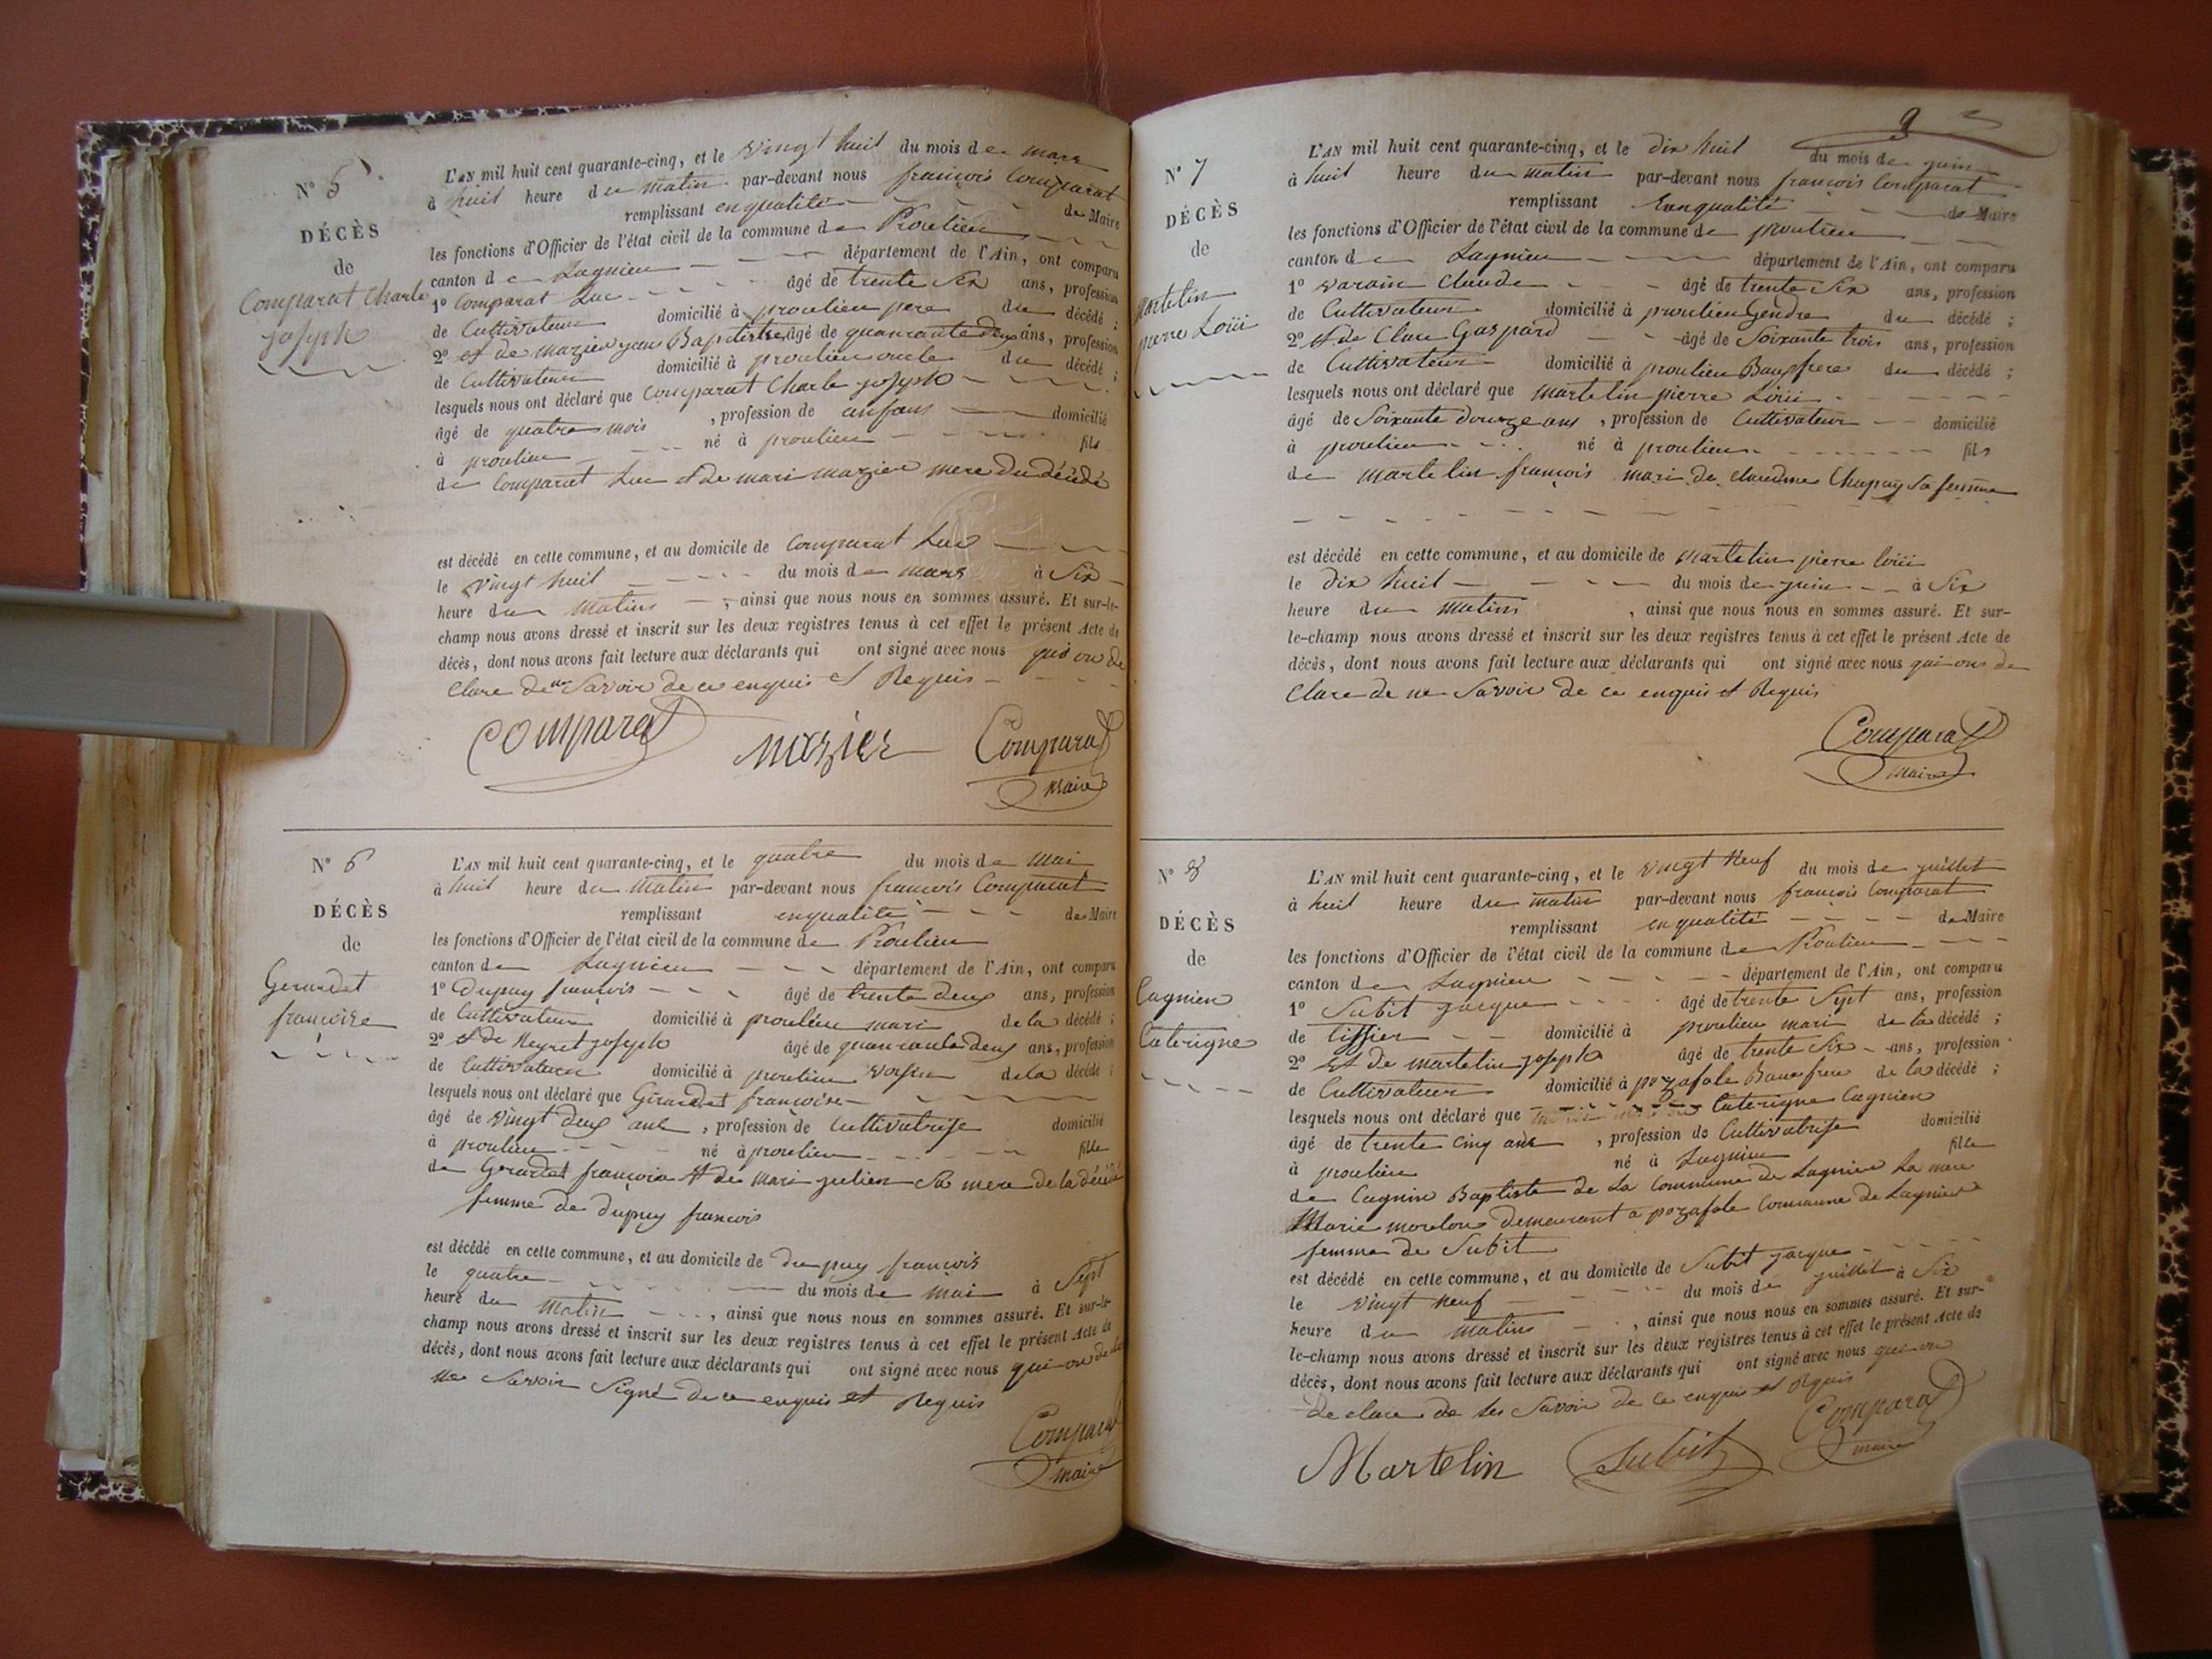 N° 5
DÉCÈS
de
Comparat Charle
joseph
L'AN mil huit cent quarante-cinq, et le vingt huit du mois de mars
à huit heure du matin par-devant nous françois Comparat
remplissant en qualité de Maire
les fonctions d'Officier de l'état civil de la commune de Proulieu
canton de Lagnieu département de l'Ain, ont comparu
1° Comparat Luc âgé de trente Six ans, profession
de Cultivateur domicilié à proulieu pere du décédé ;
2° et de mazier jean Baptiste âgé de quarante deux ans, profession
de Cultivateur domicilié à proulieu oncle du décédé ;
lesquels nous ont déclaré que Comparat Charle joseph
âgé de quatre mois , profession de anfans domicilié
à proulieu né à proulieu fils
de Comparat Luc et de mari mazier mere du décédé
est décédé en cette commune, et au domicile de Comparat Luc
le vingt huit du mois de mars à Six
heure du matin , ainsi que nous nous en sommes assuré. Et sur-le-
champ nous avons dressé et inscrit sur les deux registres tenus à cet effet le présent Acte de
décès, dont nous avons fait lecture aux déclarants qui ont signé avec nous qui on de
Clare de ne Savoir de ce enquis et Requis
Comparat mazier Comparat
maire
N° 6
DÉCÈS
de
Gerardet
françoise
L'AN mil huit cent quarante-cinq, et le quatre du mois de mai
à huit heure du matin par-devant nous françois Comparat
remplissant en qualité de Maire
les fonctions d'Officier de l'état civil de la commune de Proulieu
canton de Lagnieu département de l'Ain, ont comparu
1° Dupuy françois âgé de trente deux ans, profession
de Cultivateur domicilié à proulieu mari de la décédé ;
2° et de Neyret joseph âgé de quarante deux ans, profession
de Cultivateur domicilié à proulieu voysin de la décédé ;
lesquels nous ont déclaré que Girardet françoise
âgé de vingt deux ans , profession de Cultivatrise domicilié
à proulieu né à proulieu fille
de Gerardet françois et de mari julien Sa mere de la décédé
femme de dupuy francois
est décédé en cette commune, et au domicile de dupuy françois
le quatre du mois de mai à Sept
heure du matin , ainsi que nous nous en sommes assuré. Et sur-le-
champ nous avons dressé et inscrit sur les deux registres tenus à cet effet le présent Acte de
décès, dont nous avons fait lecture aux déclarants qui ont signé avec nous qui on de
ne Savoir Signé de ce enquis et Requis
Comparat
maire
9
N° 7
DÉCÈS
de
Martelin
pierre Loüi
L'AN mil huit cent quarante-cinq, et le dix huit du mois de juin
à huit heure du matin par-devant nous françois Comparat
remplissant En qualité de Maire
les fonctions d'Officier de l'état civil de la commune de proulieu
canton de Lagnieu département de l'Ain, ont comparu
1° varain Claude âgé de trente Six ans, profession
de Cultivateur domicilié à proulieu Gendre du décédé ;
2° et de Clare Gaspard âgé de Soixante trois ans, profession
de Cultivateur domicilié à proulieu Baufrere du décédé ;
lesquels nous ont déclaré que martelin pierre Loüi
âgé de Soixante douze ans , profession de Cultivateur domicilié
à proulieu né à proulieu fils
de martelin françois mari de claudine Chapuy Sa femme
est décédé en cette commune, et au domicile de martelin pierre loüi
le dix huit du mois de juin à Six
heure du matin , ainsi que nous nous en sommes assuré. Et sur-
le-champ nous avons dressé et inscrit sur les deux registres tenus à cet effet le présent Acte de
décès, dont nous avons fait lecture aux déclarants qui ont signé avec nous qui ons de
Clare de ne Savoir de ce enquis et Requis
Comparat
maire
N° 8
DÉCÈS
de
Cagnien
Caterigne
L'AN mil huit cent quarante-cinq, et le vingt Neuf du mois de juillet
à huit heure du matin par-devant nous françois Comparat
remplissant en qualité de Maire
les fonctions d'Officier de l'état civil de la commune de Proulieu
canton de Lagnieu département de l'Ain, ont comparu
1° Subit jacque âgé de trente Sept ans, profession
de tissier domicilié à proulieu mari de la décédé ;
2° et de martelin joseph âgé de trente Six ans, profession
de Cultivateur domicilié à pozafole Baufrere de la décédé ;
lesquels nous ont déclaré que Caterigne Cagnien
âgé de trente cinq ans , profession de Cultivatrise domicilié
à proulieu né à Lagnieu fille
de Cagnin Baptiste de La Commune de Lagnieu La mere
Marie morelon demeurant a pozafole Commune de Lagnieu
femme de Subit
est décédé en cette commune, et au domicile de Subit jacque
le vingt Neuf du mois de juillet à Six
heure du matin , ainsi que nous nous en sommes assuré. Et sur-
le-champ nous avons dressé et inscrit sur les deux registres tenus à cet effet le présent Acte de
décès, dont nous avons fait lecture aux déclarants qui ont signé avec nous qui on
declare de Savoir de ce enquis et Requis
Martelin Subit Comparat
maire